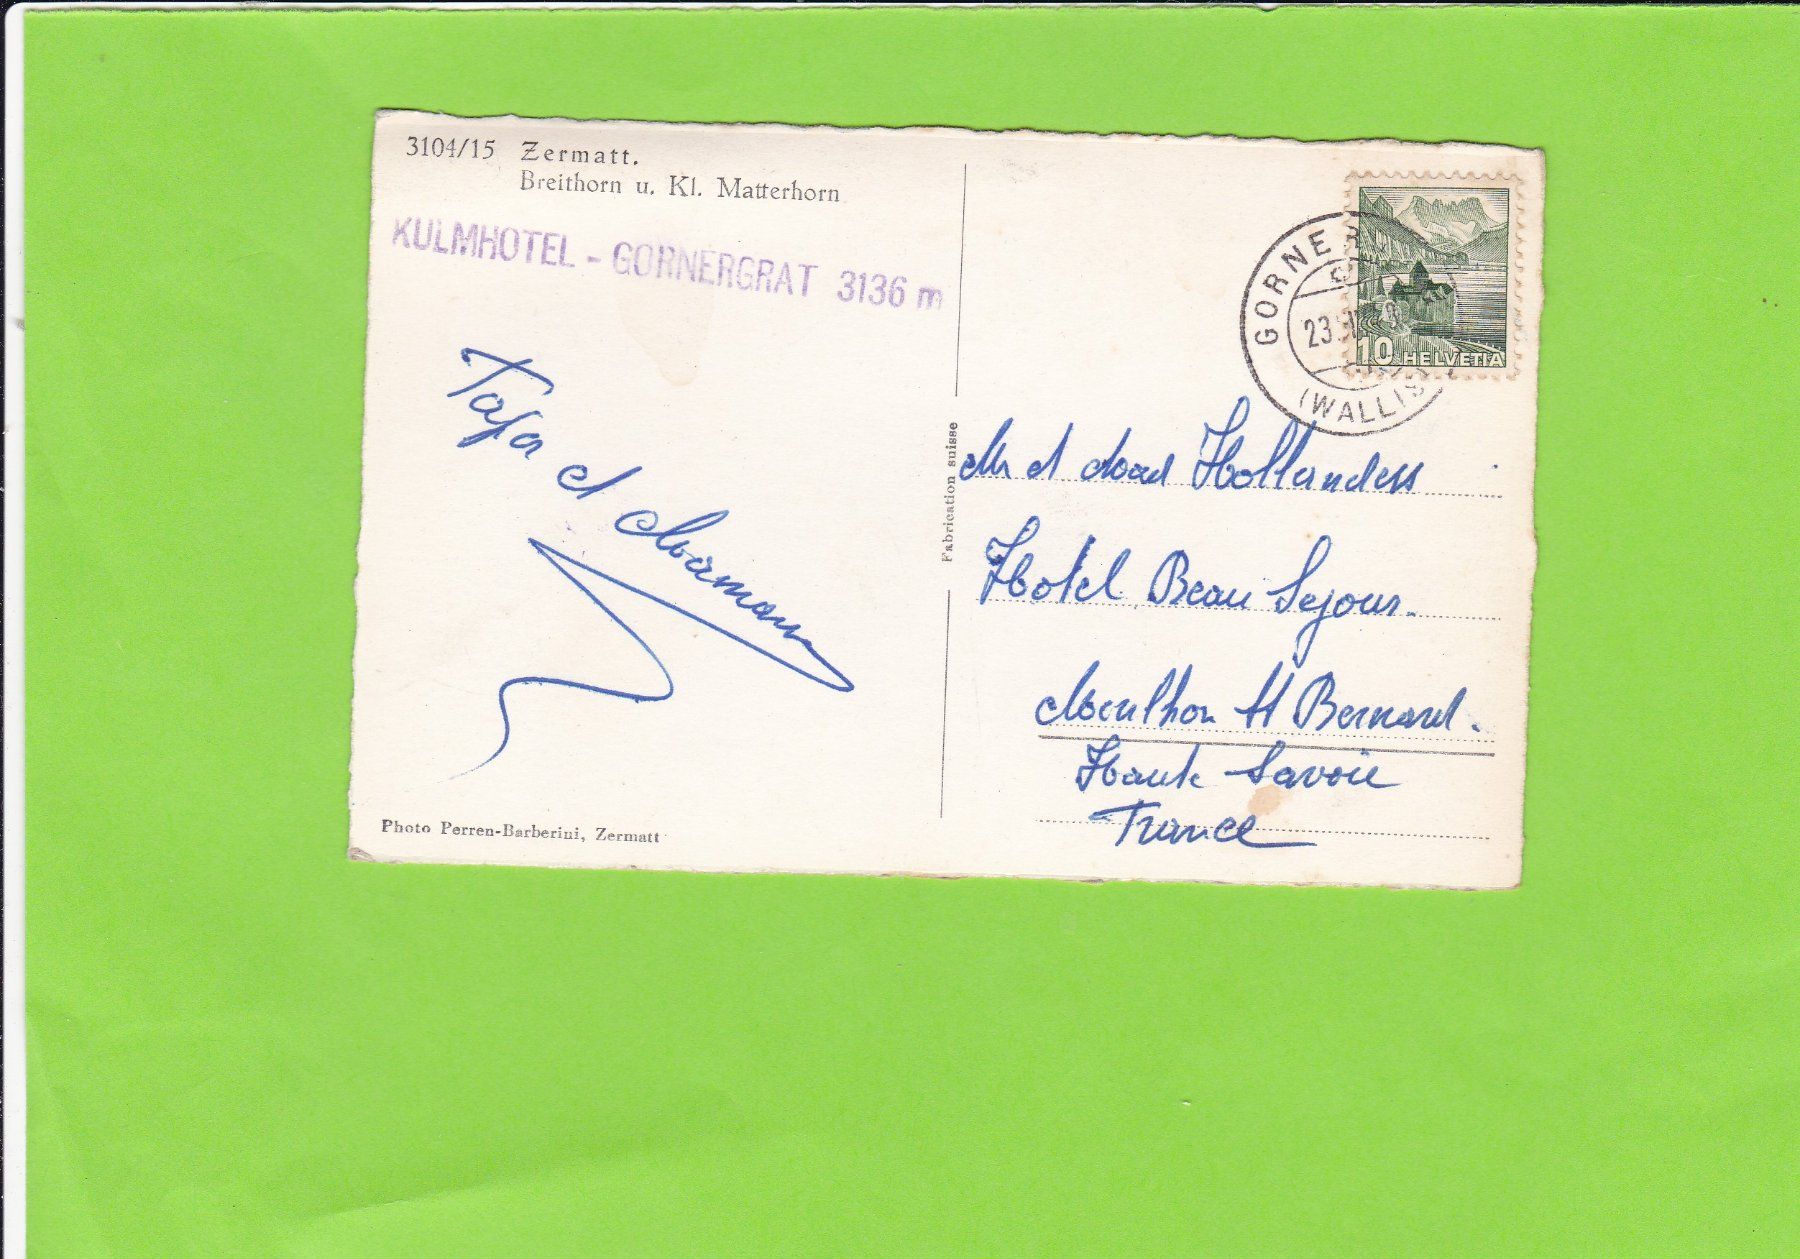 3104/15 Zermatt.
Breithorn u. Kl. Matterhorn
KULMHOTEL - GORNERGRAT 3136 m
et Maman
Photo Perren-Barberini, Zermatt
Fabrication suisse
GORNER
23
(WALLIS
10 HELVETIA
Mr et Mad Hollandess
Hotel Beau Sejour.
Menthon St Bernard.
Haute Savoie
France